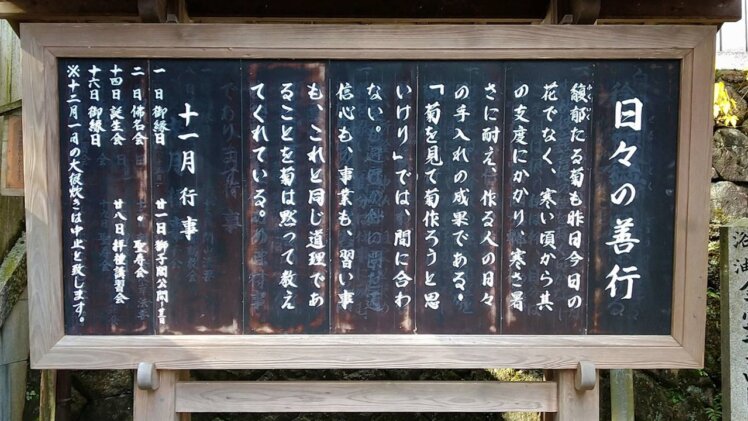 日々の善行
馥郁たる菊も昨日今日の
花でなく、寒い頃から其
の支度にかかり、寒さ暑
さに耐え、作る人の日々
の手入れの成果である。
「菊を見て菊作ろうと思
いけり」では、間に合わ
ない。
信心も、事業も、習い事
も、これと同じ道理であ
ることを菊は黙って教え
てくれている。
十一月 行事
一日 御縁日
二日 佛名会
十四日 誕生会
十六日 御縁日
廿一日 獅子閣公開
聖寿会
廿八日 拝種講習会
※十二月一日の大根炊きは中止と致します。